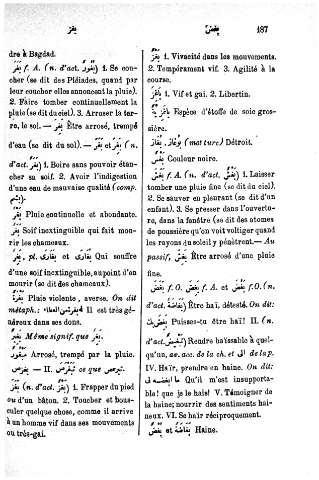 بغر
بغض
187
dre à Bagdad.
بَغَرَ f. A. (n. d'act. بُغُورٌ) 1. Se coucher
(se dit des Pléiades, quand par
leur coucher elles annoncent la pluie).
2. Faire tomber continuellement la
pluie (se dit du ciel). 3. Arruser la terre,
le sol.— بُغِرَ Être arrosé, trempé
d'eau (se dit du sol).— بَغَرَ et بَغِرَ (n.
d'act. بَغَرٌ) 1. Boire sans pouvoir étancher
sa soif. 2. Avoir l'indigestion
d'une eau de mauvaise qualité (comp.
بَغْرٌ Pluie continuelle et abondante.
بَغَرٌ Soif inextinguible qui fait mourir
les chameaux.
بَغِرٌ, pl. بَغَارَى et بُغَارَى Qui souffre
d'une soif inextinguible, au point d'en
mourir (se dit des chameaux).
بَغْرَةٌ Pluie violente, averse. On dit
métaph.: Il est très généreux
dans ses dons.
بَغِيرٌ Même signif. que بَغِرٌ.
مَبْغُورٌ Arrosé, trempé par la pluie.
بغرس — II. تَبَغْرَسَ ce que
بَغَزَ (n. d'act. بَغْزٌ) 1. Frapper du pied
ou d'un bâton. 2. Toucher et bousculer
quelque chose, comme il arrive
à un homme vif dans ses mouvements
ou très-gai.
بَغْزٌ 1. Vivacité dans les mouvements.
2. Tempérament vif. 3. Agilité à la
course.
بَاغِزٌ 1. Vif et gai. 2. Libertin.
بَاغِزِيَّةٌ Espèce d'étoffe de soie grossière.
بوغاز, بُغَازٌ (mot turc) Détroit.
بَغَسٌ Couleur noire.
بَغَشَ f. A. (n. d'act. بَغْشٌ) 1. Laisser
tomber une pluie fine (se dit du ciel).
2. Se sauver en pleurant (se dit d'un
enfant). 3. Se presser dans l'ouverture,
dans la fenêtre (se dit des atomes
de poussière qu'on voit voltiger quand
les rayons du soleil y pénètrent.— Au
passif, بُغِشَ Être arrosé d'une pluie
fine.
بَغَضَ f. O. بَغِضَ f. A. et بَغُضَ f. O. (n.
d'act. بَغَاضَةٌ) Être haï, détesté. On dit:
Puisses-tu être haï! II. (n.
d'act. تَبْغِيضٌ) Rendre haïssable à quelqu'un,
av. acc. de la ch. et الى de la p.
IV. Haïr, prendre en haine. On dit:
ما ابغضه الى Qu'il m'est insupportable!
que je le hais! V. Témoigner de
la haine; nourrir des sentiments haineux.
VI. Se haïr réciproquement.
بُغْضٌ et بَغَاضَةٌ Haine.